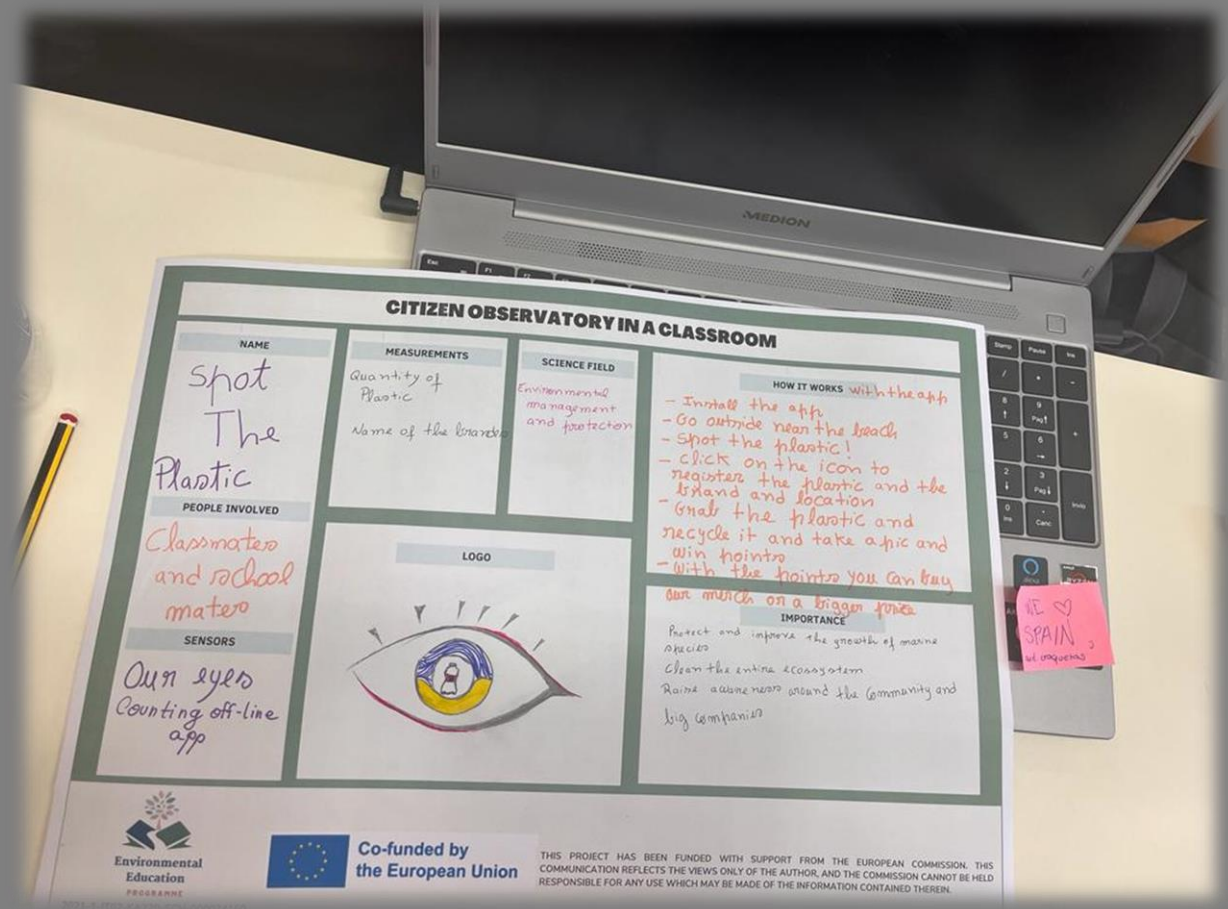 MEDION
CITIZEN OBSERVATORY IN A CLASSROOM
NAME
Spot
The
Plastic
PEOPLE INVOLVED
Classmates
and school
mates
SENSORS
Our eyes
Counting off-line
app
MEASUREMENTS
Quantity of
Plastic
Name of the brandes
SCIENCE FIELD
Environmental
management
and protection
LOGO
HOW IT WORKS with the app
- Install the app
- Go outside near the beach
- Spot the plastic!
- Click on the icon to
register the plastic and the
brand and location
- Grab the plastic and
recycle it and take a pic and
win points
- With the points you can buy
our merch or a bigger
IMPORTANCE
Protect and improve the growth of marine
species
Clean the entire ecossystem
Raise awareness around the community and
big companies
WE ♡
SPAIN,
Environmental
Education
PROGRAMME
Co-funded by
the European Union
THIS PROJECT HAS BEEN FUNDED WITH SUPPORT FROM THE EUROPEAN COMMISSION. THIS
COMMUNICATION REFLECTS THE VIEWS ONLY OF THE AUTHOR, AND THE COMMISSION CANNOT BE HELD
RESPONSIBLE FOR ANY USE WHICH MAY BE MADE OF THE INFORMATION CONTAINED THEREIN.